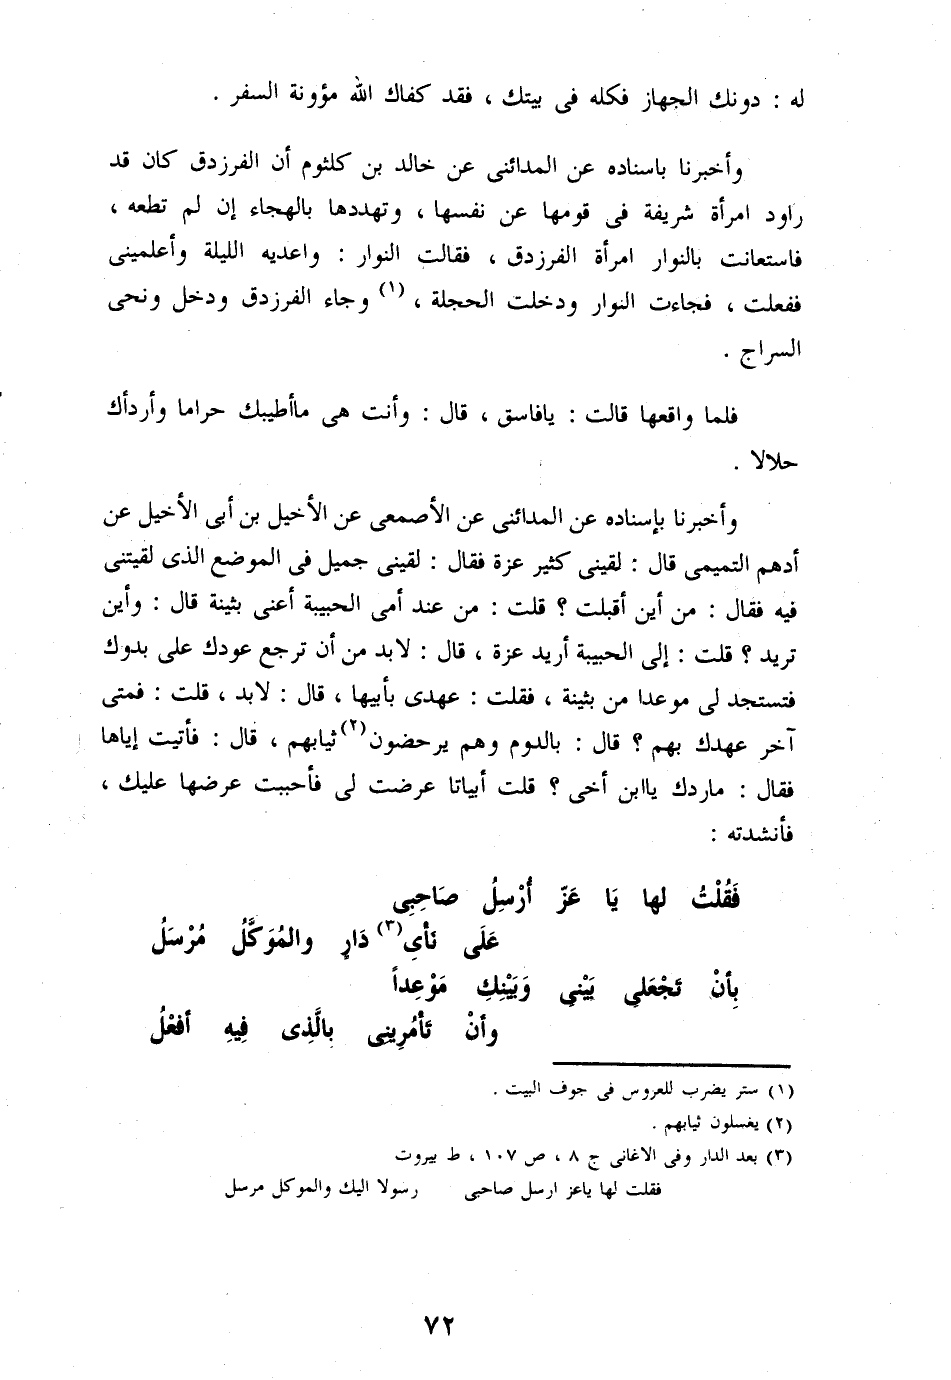 له : دونك الجهاز فكله فى بيتك ، فقد كفاك الله مؤونة السفر .
وأخبرنا باسناده عن المدائنى عن خالد بن كلثوم أن الفرزدق كان قد
راود امرأة شريفة فى قومها عن نفسها ، وتهددها بالهجاء إن لم تطعه ،
فاستعانت بالنوار امرأة الفرزدق ، فقالت النوار : واعديه الليلة وأعلمينى
ففعلت ، فجاءت النوار ودخلت الحجلة ، (١) وجاء الفرزدق ودخل ونحى
السراج .
فلما واقعها قالت : يافاسق ، قال : وأنت هى ماأطيبك حراما وأردأك
حلالا .
وأخبرنا بإسناده عن المدائنى عن الأصمعى عن الأخيل بن أبى الأخيل عن
أدهم التميمى قال : لقينى كثير عزة فقال : لقينى جميل فى الموضع الذى لقيتنى
فيه فقال : من أين أقبلت ؟ قلت : من عند أمى الحبيبة أعنى بثينة قال : وأين
تريد ؟ قلت : إلى الحبيبة أريد عزة ، قال : لابد من أن ترجع عودك على بدوك
فتستجد لى موعدا من بثينة ، فقلت : عهدى بأبيها ، قال : لابد ، قلت : فمتى
آخر عهدك بهم ؟ قال : بالدوم وهم يرحضون (٢) ثيابهم ، قال : فأتيت إياها
فقال : ماردك ياابن أخى ؟ قلت أبياتا عرضت لى فأحببت عرضها عليك ،
فأنشدته :
فَقُلْتُ لها يَا عَزّ أرْسِلُ صَاحِبِى
عَلَى نَأىِ (٣) دَارٍ والمُوَكَّلُ مُرْسَلُ
بِأنْ تَجْعَلى بَيْنى وَبَيْنِكِ مَوْعِداً
وأنْ تَأمُرِينِى بالَّذِى فِيهِ أفعْلُ
(١) ستر يضرب للعروس فى جوف البيت .
(٢) يغسلون ثيابهم .
(٣) بعد الدار وفى الاغانى ج ٨ ، ص ١٠٧ ، ط بيروت
فقلت لها ياعز ارسل صاحبى رسولا اليك والموكل مرسل
٧٢